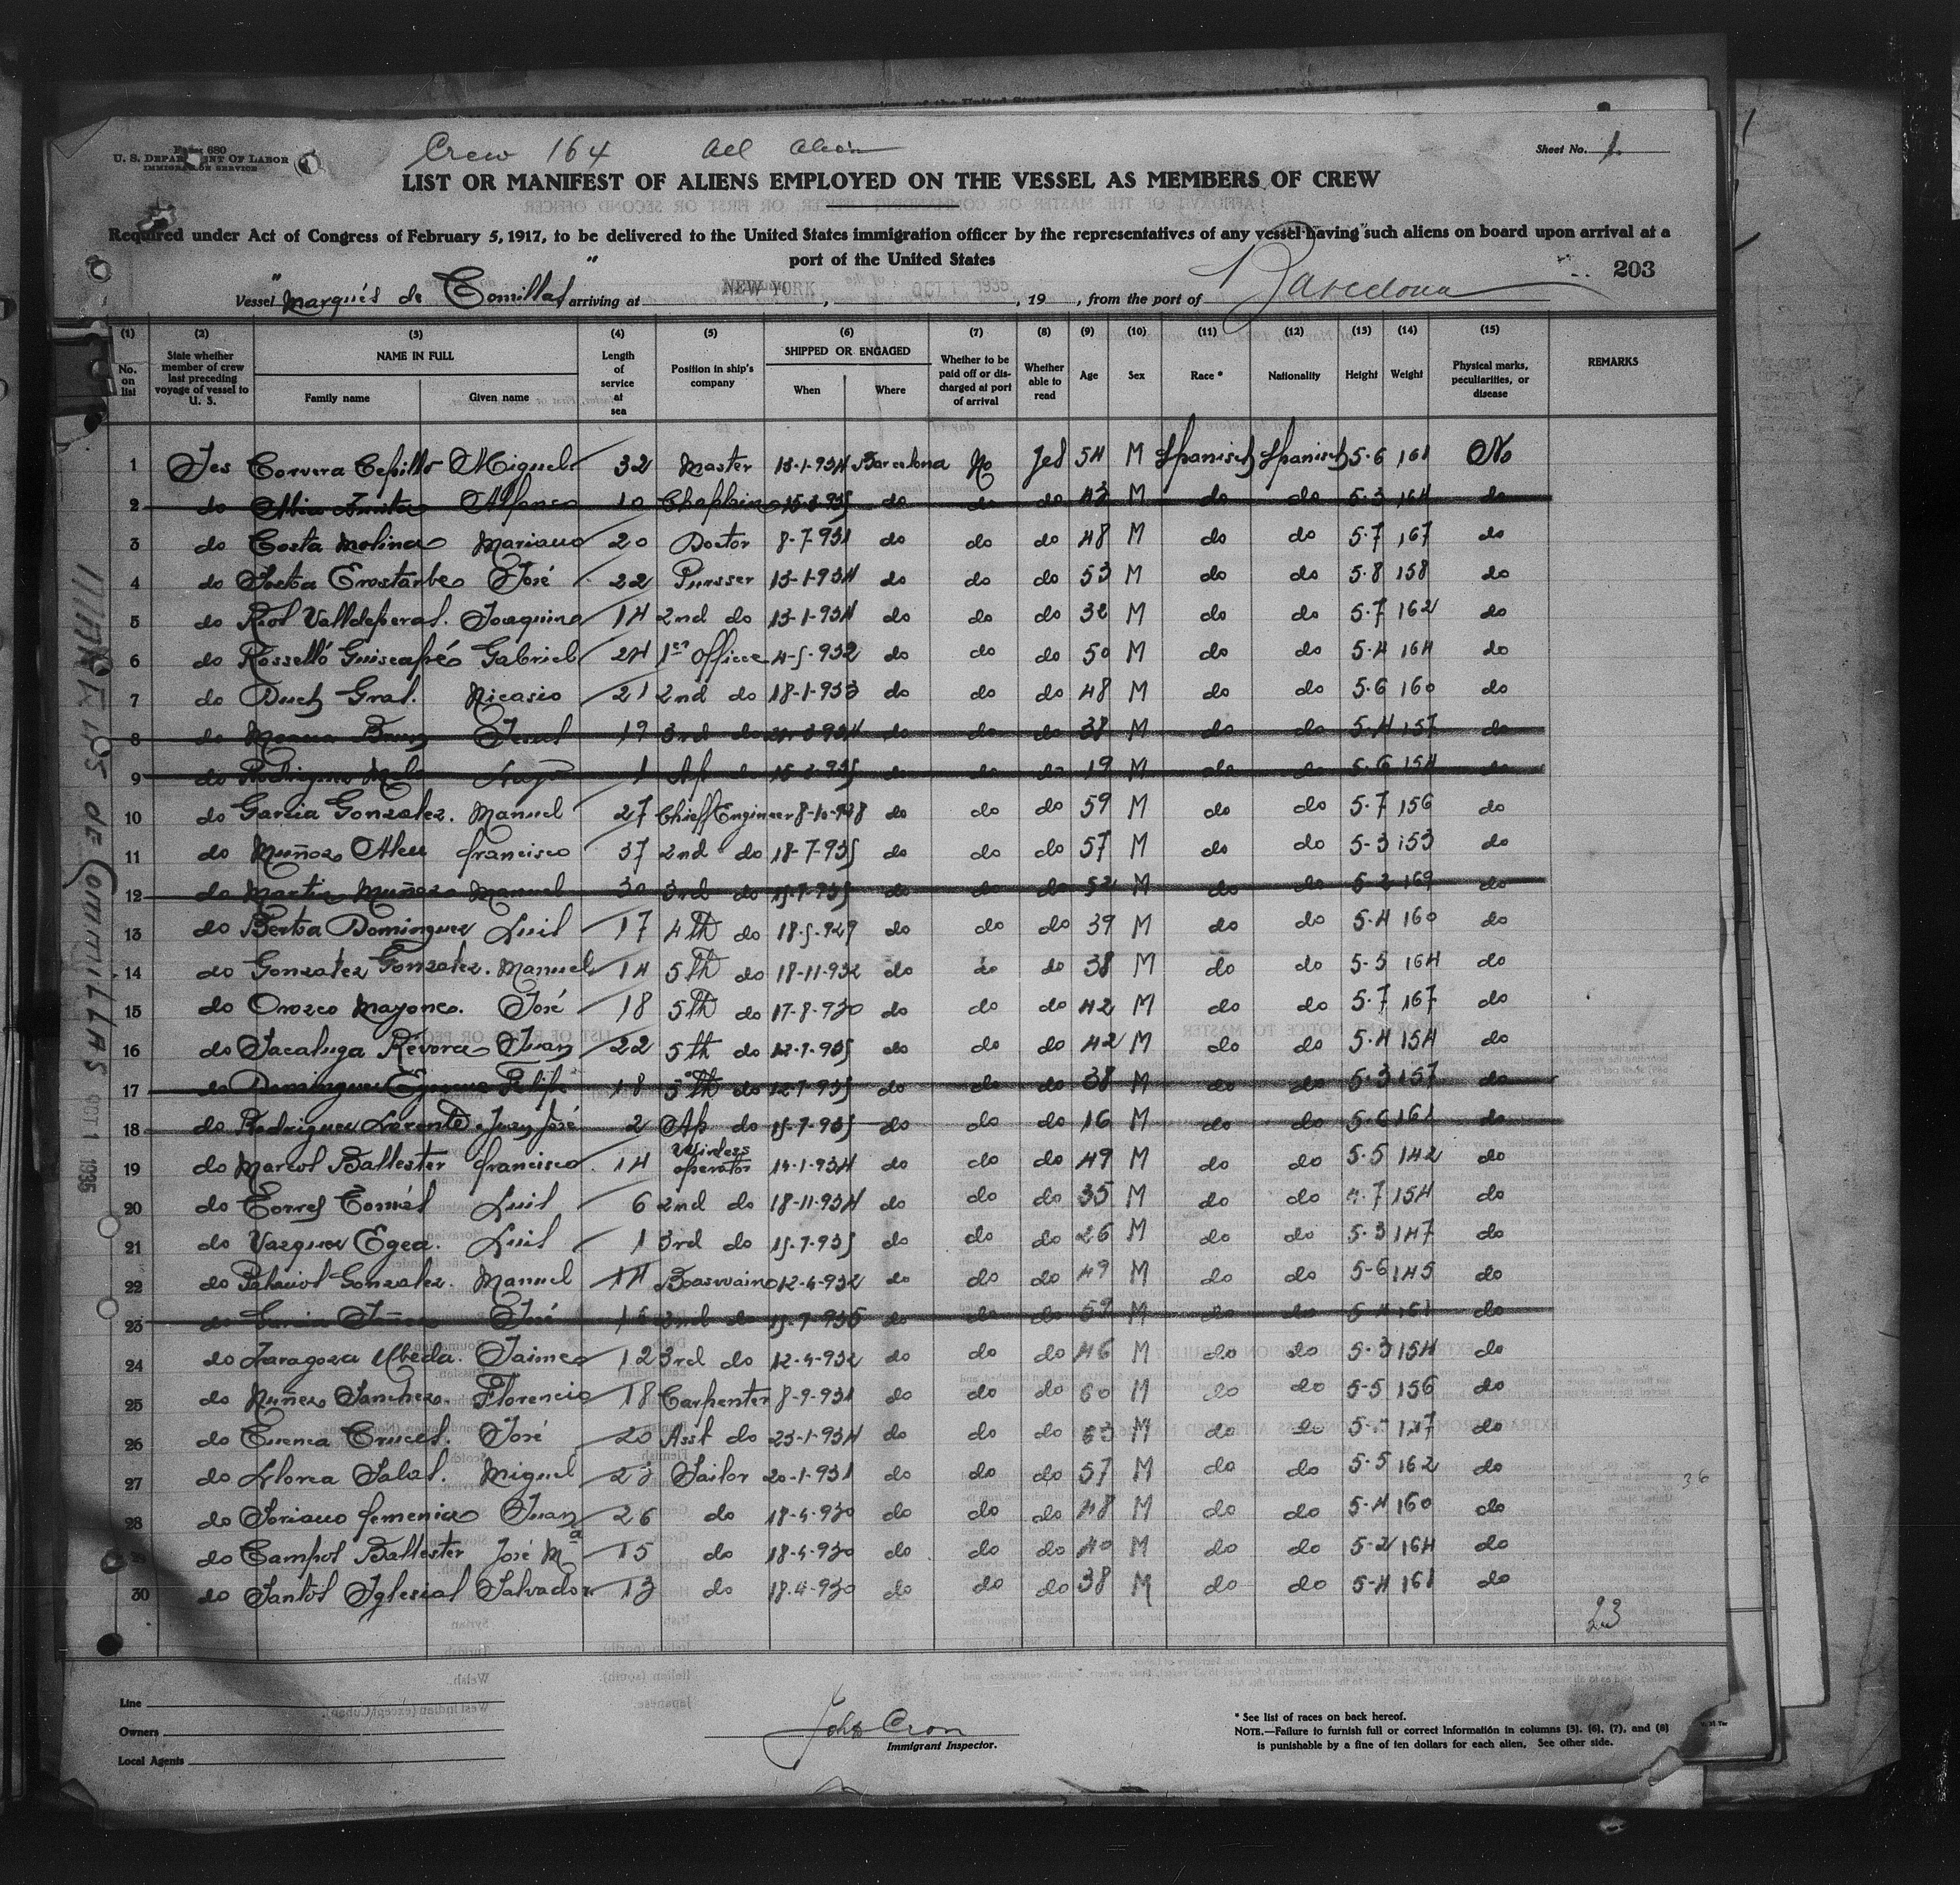 Form 680
U. S. DEPARTMENT OF LABOR
IMMIGRATION SERVICE
Crew 164 All Alien
Sheet No. 1
LIST OR MANIFEST OF ALIENS EMPLOYED ON THE VESSEL AS MEMBERS OF CREW
Required under Act of Congress of February 5, 1917, to be delivered to the United States immigration officer by the representatives of any vessel having such aliens on board upon arrival at a
port of the United States
203
Vessel "Marqués de Comillas" arriving at NEW YORK, OCT 1 1935, 19, from the port of Barcelona
(1) (2) (3) (4) (5) (6) (7) (8) (9) (10) (11) (12) (13) (14) (15)
No. on list State whether member of crew last preceding voyage of vessel to U. S. NAME IN FULL Family name Given name Length of service at sea Position in ship's company SHIPPED OR ENGAGED When Where Whether to be paid off or discharged at port of arrival Whether able to read Age Sex Race * Nationality Height Weight Physical marks, peculiarities, or disease REMARKS
1 Jes Corvera Cepillo Miguel 32 Master 13-1-934 Barcelona No Jes 54 M Spanish Spanish 5-6 161 No
2 do Alfonso 10 Chaplain do do do 43 M do do 5-3 164 do
3 do Costa Molina Mariano 20 Doctor 8-7-931 do do do 48 M do do 5-7 167 do
4 do Erostarbe José 22 Pursser 13-1-934 do do do 53 M do do 5-8 158 do
5 do Riol Valldeperas. Joaquino 14 2nd do 13-1-934 do do do 32 M do do 5-7 162 do
6 do Rosselló Guiscafré Gabriel 24 1er officer 4-5-932 do do do 50 M do do 5-4 164 do
7 do Duch Gral. Nicasio 21 2nd do 18-1-933 do do do 48 M do do 5-6 160 do
8 do Jesus 19 3rd do do do do 38 M do do 5-4 157 do
9 do Rodriguez 1 Ap do do do do 19 M do do 5-6 154 do
10 do Garcia Gonzalez. Manuel 27 Chieff Engineer 8-10-928 do do do 59 M do do 5-7 156 do
11 do Muñoz Aleu francisco 37 2nd do 18-7-935 do do do 57 M do do 5-3 153 do
12 do Martin Muñoz Manuel 30 3rd do 15-7-935 do do do 52 M do do 5-2 169 do
13 do Berba Dominguez Luis 17 4th do 18-5-929 do do do 39 M do do 5-4 160 do
14 do Gonzalez Gonzalez. Manuel 14 5th do 18-11-932 do do do 38 M do do 5-5 164 do
15 do Orozco Mayonco. José 18 5th do 17-8-930 do do do 42 M do do 5-7 167 do
16 do Sacaluga Révora Juan 22 5th do 12-7-935 do do do 42 M do do 5-4 154 do
17 do Dominguez Felipe 18 5th do 12-7-935 do do do 38 M do do 5-3 157 do
18 do Rodriguez Lorente Juan José 2 Ap do 15-7-935 do do do 16 M do do 5-6 161 do
19 do Marcos Ballester francisco. 14 Wireless operator 14-1-934 do do do 49 M do do 5-5 142 do
20 do Torres Tomás Luis 6 2nd do 18-11-934 do do do 35 M do do 7 154 do
21 do Vazquez Egea. Luis 1 3rd do 15-7-935 do do do 26 M do do 5-3 147 do
22 do Palacios Gonzalez. Manuel 14 Boaswain 12-4-932 do do do 49 M do do 5-6 145 do
23 do Garcia José 16 2nd do 15-7-935 do do do 59 M do do 5-4 161 do
24 do Zaragoza Ubeda. Jaime 12 3rd do 12-4-932 do do do 46 M do do 5-3 154 do
25 do Nuñez Sanchez. Florencio 18 Carpenter 8-9-931 do do do 60 M do do 5-5 156 do
26 do Cuenca Cruces. José 20 Asst do 23-1-934 do do do 63 M do do do
27 do Llorca Salas. Miguel 23 Sailor 20-1-931 do do do 57 M do do 5-5 162 do
28 do Soriano femenia Juan 26 do 18-4-930 do do do 48 M do do 5-4 160 do
29 do Campos Ballester José Mª 15 do 18-4-930 do do do 40 M do do 5-2 164 do
30 do Santos Iglesias Salvador 13 do 18-4-930 do do do 38 M do do 5-4 161 do
36
23
MARQUES DE COMMILLAS
OCT 1 1935
Line
Owners
Local Agents
John Cron
Immigrant Inspector.
* See list of races on back hereof.
NOTE.—Failure to furnish full or correct information in columns (3), (6), (7), and (8)
is punishable by a fine of ten dollars for each alien. See other side.